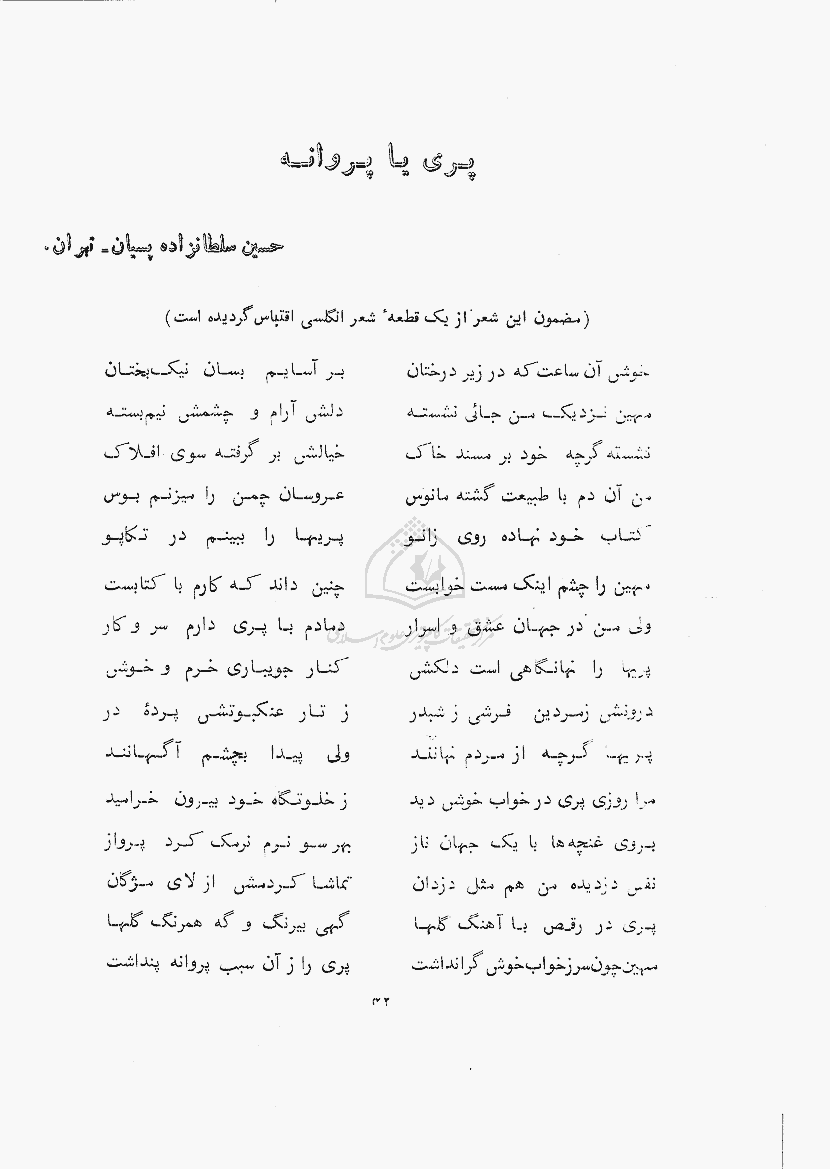 پری یا پروانه
حسین سلطانزاده پسیان ـ تهران .
(مضمون این شعر از یک قطعهٔ شعر انگلسی اقتباس گردیده است)
خوش آن ساعت که در زیر درختان بر آسایم بسان نیک‌بختان
مهین نزدیک من جائی نشسته دلش آرام و چشمش نیم‌بسته
نشسته گرچه خود بر مسند خاک خیالش بر گرفته سوی افلاک
من آن دم با طبیعت گشته مانوس عروسان چمن را میزنم بوس
کتاب خود نهاده روی زانو پریها را ببینم در تکاپو
مهین را چشم اینک مست خوابست چنین داند که کارم با کتابست
ولی من در جهان عشق و اسرار دمادم با پری دارم سر و کار
پریها را نهانگاهی است دلکش کنار جویباری خرم و خوش
درونش زمردین فرشی ز شبدر ز تار عنکبوتش پردهٔ در
پریها گرچه از مردم نهانند ولی پیدا بچشم آگهانند
مرا روزی پری در خواب خوش دید ز خلوتگاه خود بیرون خرامید
بروی غنچه‌ها با یک جهان ناز بهر سو نرم نرمک کرد پرواز
نفس دزدیده من هم مثل دزدان تماشا کردمش از لای مژگان
پری در رقص با آهنگ گلها گهی بیرنگ و گه همرنگ گلها
مهین چون سر ز خواب خوش گرانداشت پری را ز آن سبب پروانه پنداشت